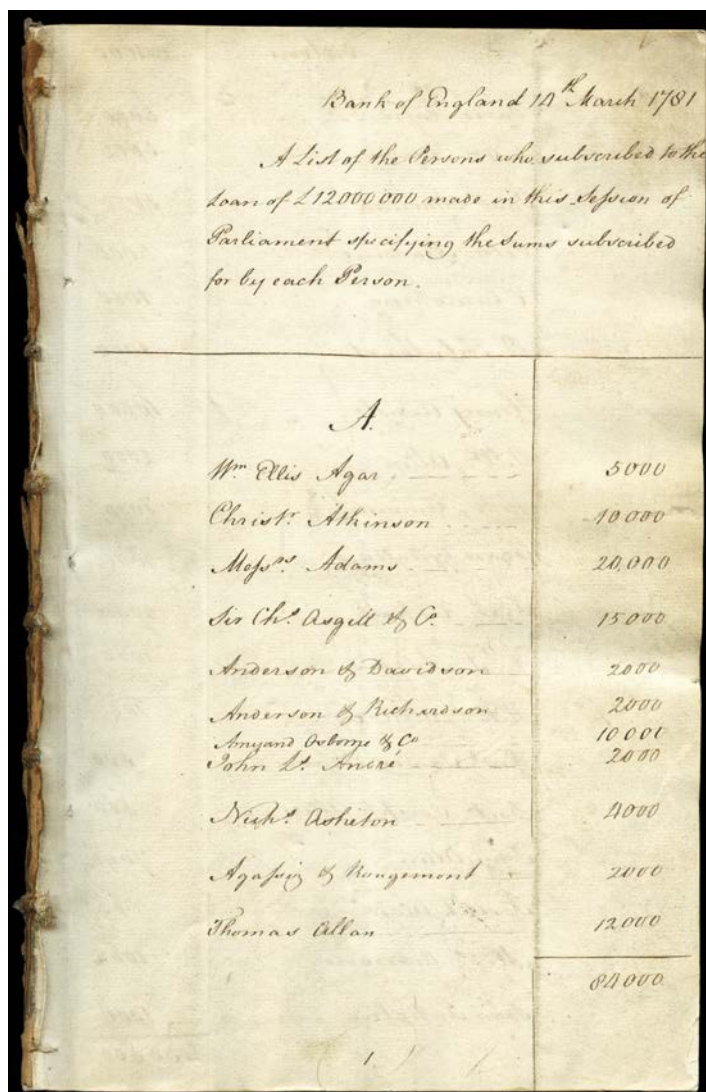 Bank of England 14th March 1781
A List of the Persons who subscribed to the
Loan of £12000000 made in this Session of
Parliament specifying the Sums subscribed
for by each Person.
A.
Wm. Ellis Agar 5000
Christr. Atkinson 10000
Messrs. Adams 20,000
Sir Chs. Asgill & Co. 15000
Anderson & Davidson 2000
Anderson & Richardson 2000
Amyand Osborne & Co 10000
John Ls. André 2000
Nichs. Asheton 4000
Agassiz & Rougemont 2000
Thomas Allan 12000
84000
1.